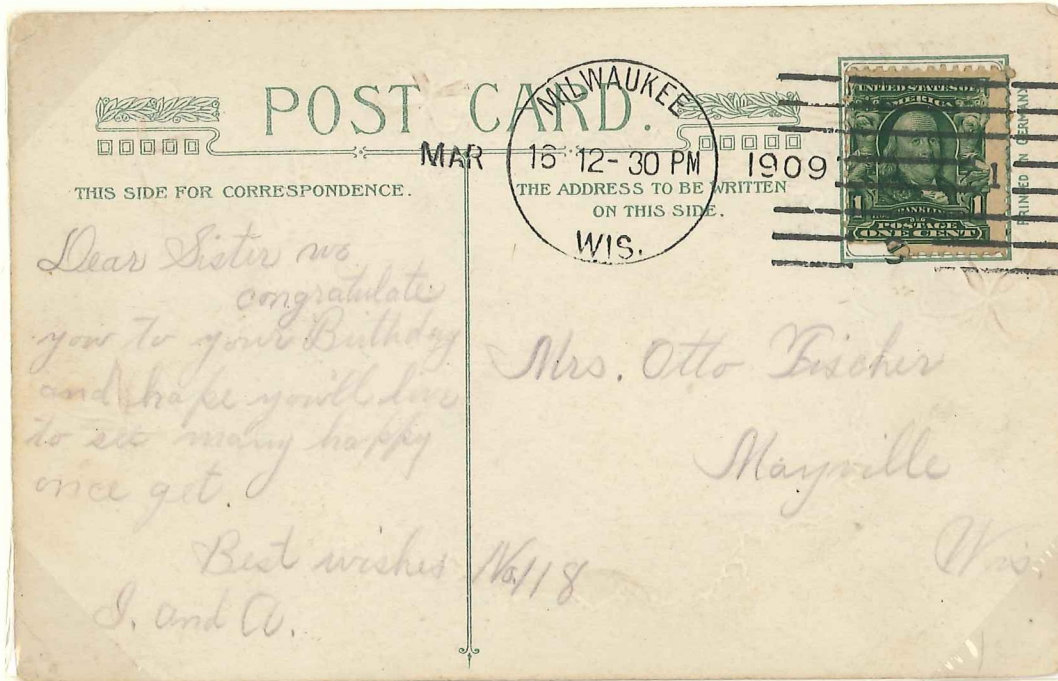 POST CARD.
MILWAUKEE
MAR 16 12-30 PM 1909
WIS.
1
UNITED STATES OF
AMERICA
1 FRANKLIN 1
POSTAGE
ONE CENT
PRINTED IN GERMANY
THIS SIDE FOR CORRESPONDENCE.
THE ADDRESS TO BE WRITTEN
ON THIS SIDE.
Dear Sister we
congratulate
you to your Birthday
and hope you'll live
to see many happy
once get.
Best wishes
I. and A.
Mrs. Otto Fischer
Mayville
Wis.
No. 118